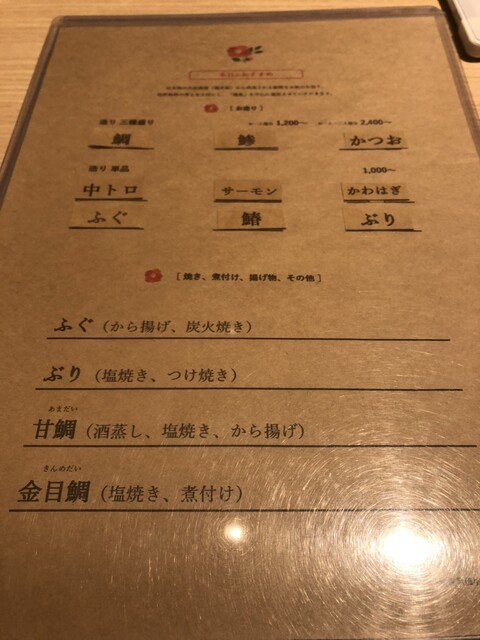 本日のおすすめ
[お造り]
造り 三種盛り 1,200〜 2,400〜
鯛 鯵 かつお
造り 単品 1,000〜
中トロ サーモン かわはぎ
ふぐ 鰆 ぶり
[焼き、煮付け、揚げ物、その他]
ふぐ（から揚げ、炭火焼き）
ぶり（塩焼き、つけ焼き）
あまだい
甘鯛（酒蒸し、塩焼き、から揚げ）
きんめだい
金目鯛（塩焼き、煮付け）